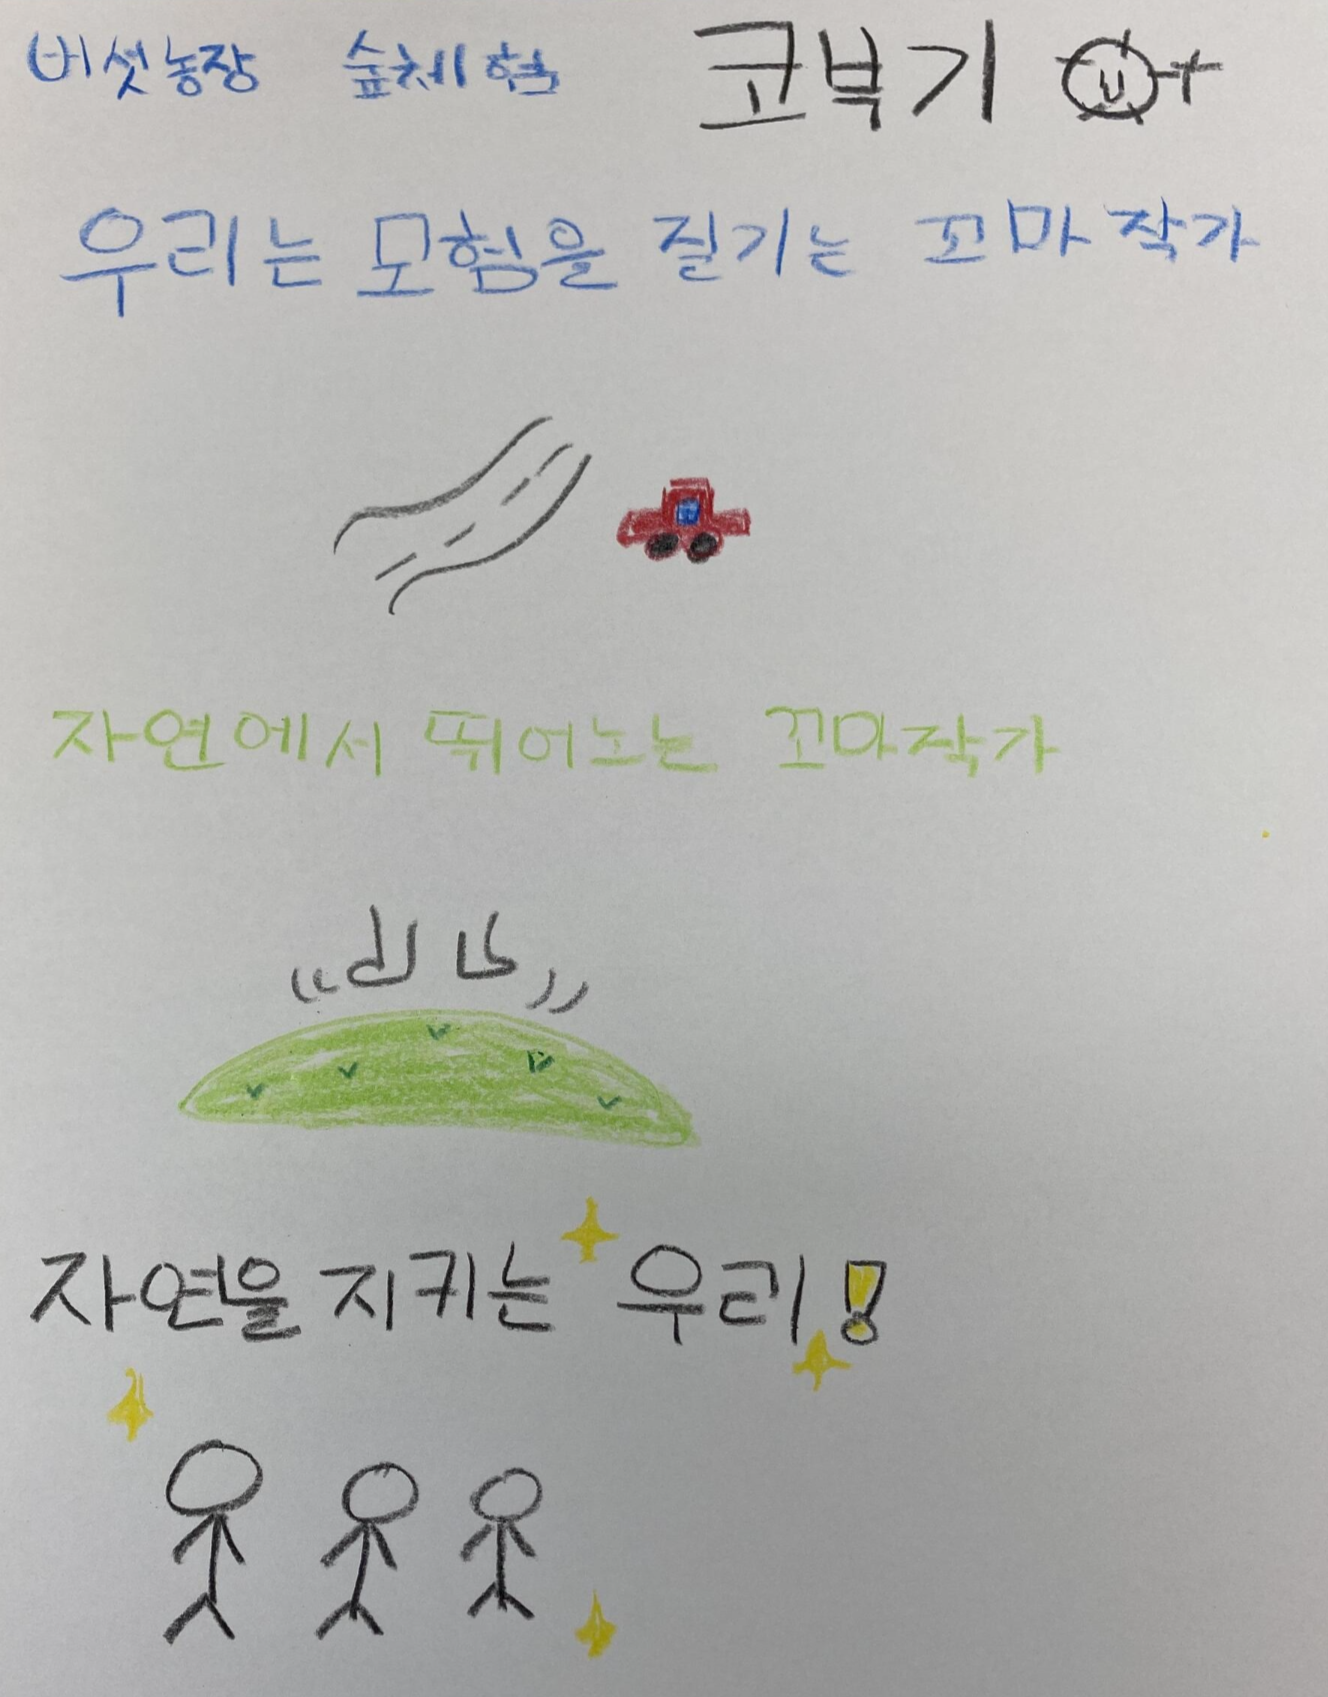 버섯농장 숲체험 코북기
우리는 모험을 질기는 꼬마 작가
자연에서 뛰어노는 꼬마작가
자연을 지키는 우리!